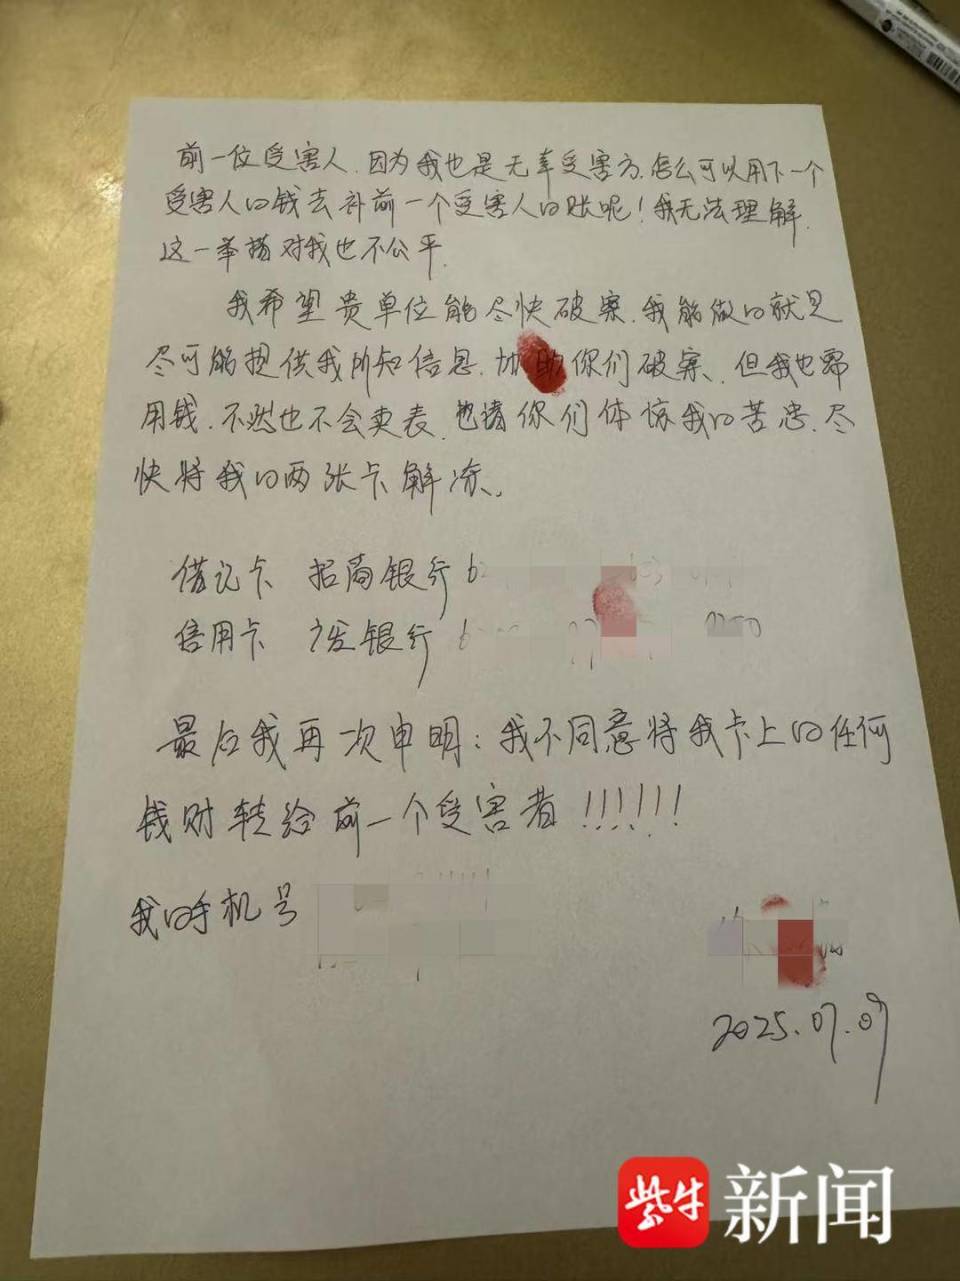 前一位受害人.因为我也是无辜受害方.怎么可以用下一个
受害人的钱去补前一个受害人的账呢!我无法理解.
这一举措对我也不公平.
我希望贵单位能尽快破案.我能做的就是
尽可能提供我所知信息.协助你们破案、但我也需
用钱.不然也不会卖表.也请你们体谅我的苦忠.尽
快将我的两张卡解冻、
借记卡 招商银行 6
信用卡 广发银行 6
最后我再次申明:我不同意将我卡上的任何
钱财转给前一个受害者!!!!!!
我的手机号
2025.07.07
紫牛新闻